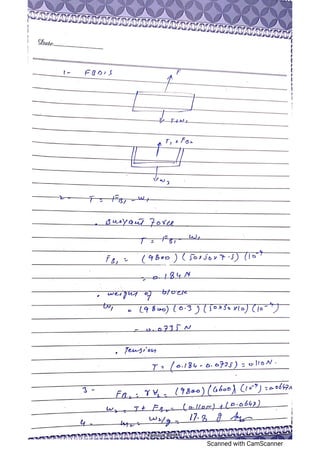 Date
1- FBD'S
F
T+W1
T, + FB2
W2
2- T = FB1 - W1
• Buoyant Force
T = FB1 - W1
FB1 = (9800) (50x50x7.5) (10-9)
= 0.184N
• weight of block
W1 = (9800) (0.3) (50x50x10) (10-9)
= 0.0735N
• Tension
T = (0.184 - 0.0735) = 0.110N.
3- FB2 = γV2 = (9800) (6600) (10-9) = 0.0647N
W2 = T + FB2 = (0.110N) + (0.0647)
4- = W2/g = 17.8 g
Scanned with CamScanner